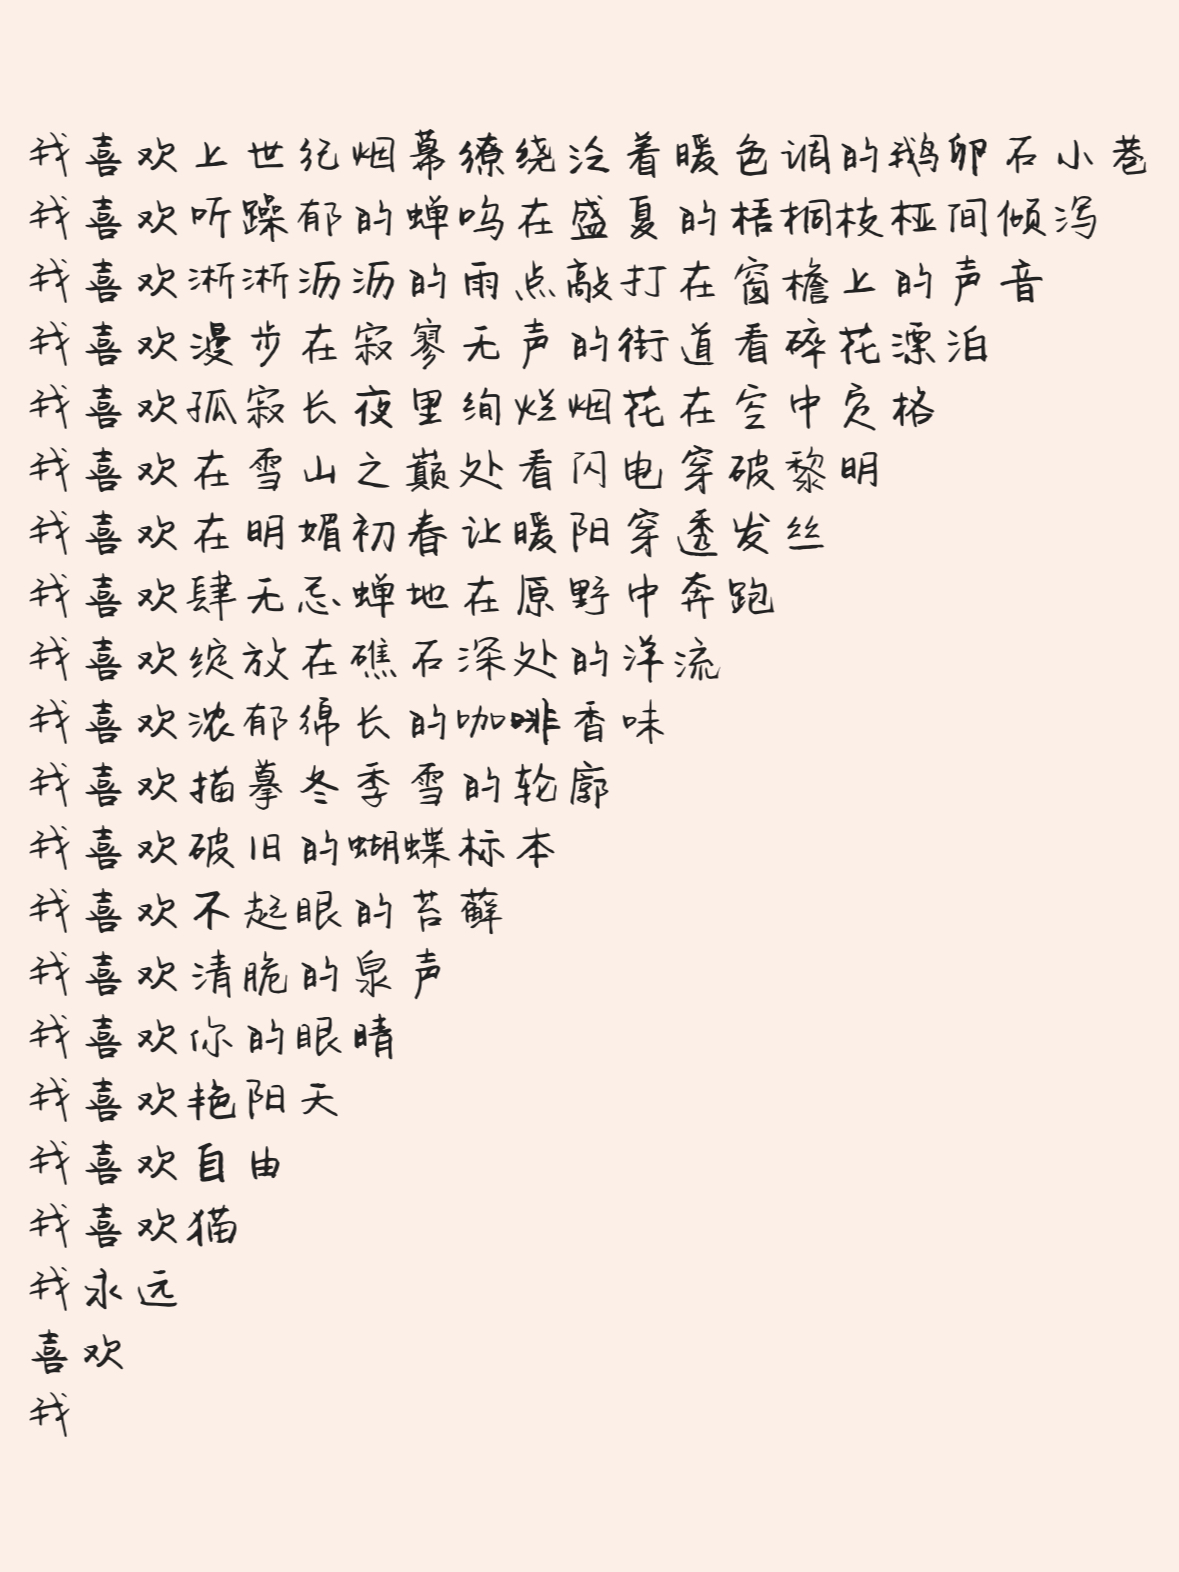 我喜欢上世纪烟幕缭绕泠着暖色调的鹅卵石小巷
我喜欢听躁郁的蝉鸣在盛夏的梧桐枝桠间倾泻
我喜欢淅淅沥沥的雨点敲打在窗檐上的声音
我喜欢漫步在寂寥无声的街道看碎花漂泊
我喜欢孤寂长夜里绚烂烟花在空中定格
我喜欢在雪山之巅处看闪电穿破黎明
我喜欢在明媚初春让暖阳穿透发丝
我喜欢肆无忌蝉地在原野中奔跑
我喜欢绽放在礁石深处的洋流
我喜欢浓郁绵长的咖啡香味
我喜欢描摹冬季雪的轮廓
我喜欢破旧的蝴蝶标本
我喜欢不起眼的苔藓
我喜欢清脆的泉声
我喜欢你的眼睛
我喜欢艳阳天
我喜欢自由
我喜欢猫
我永远
喜欢
我